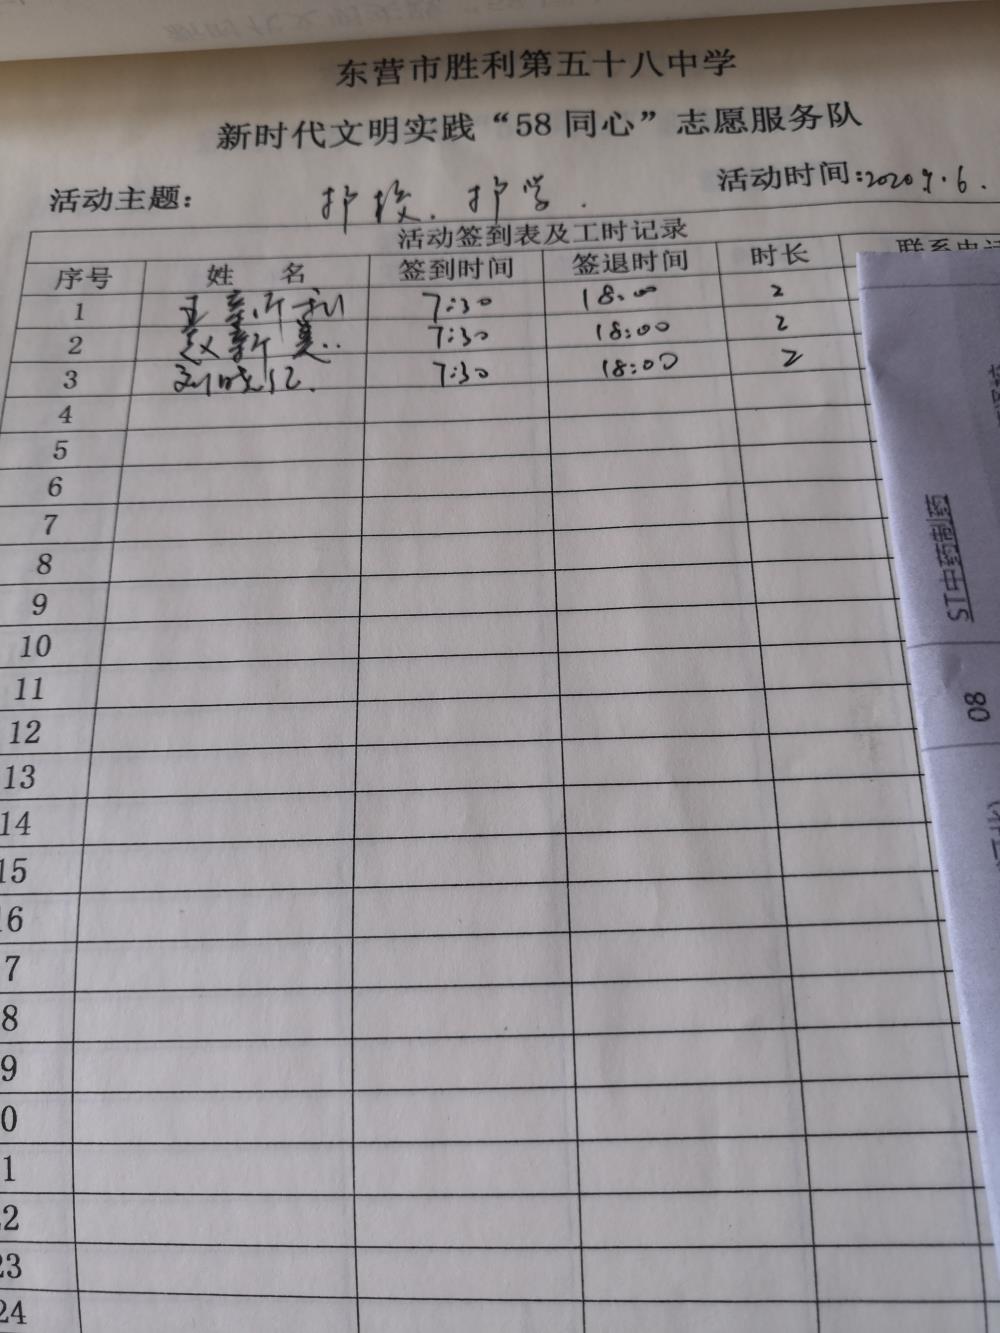 东营市胜利第五十八中学
新时代文明实践“58同心”志愿服务队
活动主题: 护校.护学. 活动时间:2020 9.6.
活动签到表及工时记录
序号 姓 名 签到时间 签退时间 时长
1 7:30 18:00 2
2 赵新美 7:30 18:00 2
3 刘晓红 7:30 18:00 2
4
5
6
7
8
9
10
11
12
13
14
15
16
7
8
9
0
1
2
23
24
ST中药制药
08